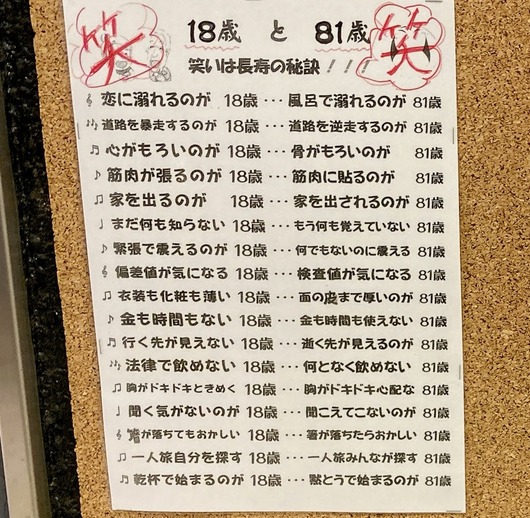 笑 18歳 と 81歳 笑
笑いは長寿の秘訣!!!
恋に溺れるのが 18歳・・・風呂で溺れるのが 81歳
道路を暴走するのが 18歳・・・道路を逆走するのが 81歳
心がもろいのが 18歳・・・骨がもろいのが 81歳
筋肉が張るのが 18歳・・・筋肉に貼るのが 81歳
家を出るのが 18歳・・・家を出されるのが 81歳
まだ何も知らない 18歳・・・もう何も覚えていない 81歳
緊張で震えるのが 18歳・・・何でもないのに震える 81歳
偏差値が気になる 18歳・・・検査値が気になる 81歳
衣装も化粧も薄い 18歳・・・面の皮まで厚いのが 81歳
金も時間もない 18歳・・・金も時間も使えない 81歳
行く先が見えない 18歳・・・逝く先が見えるのが 81歳
法律で飲めない 18歳・・・何となく飲めない 81歳
胸がドキドキときめく 18歳・・・胸がドキドキ心配な 81歳
聞く気がないのが 18歳・・・聞こえてこないのが 81歳
箸が落ちてもおかしい 18歳・・・箸が落ちたらおかしい 81歳
一人旅自分を探す 18歳・・・一人旅みんなが探す 81歳
乾杯で始まるのが 18歳・・・黙とうで始まるのが 81歳